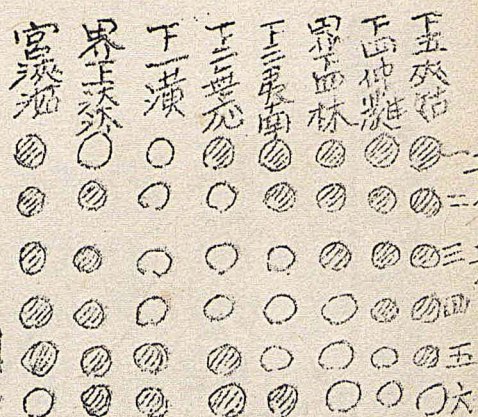 下五夾姑
下四仲蕤
界下四林
下三夷南
下二無応
下一潢
界上汰
宮浹
一
二
三
四
五
六